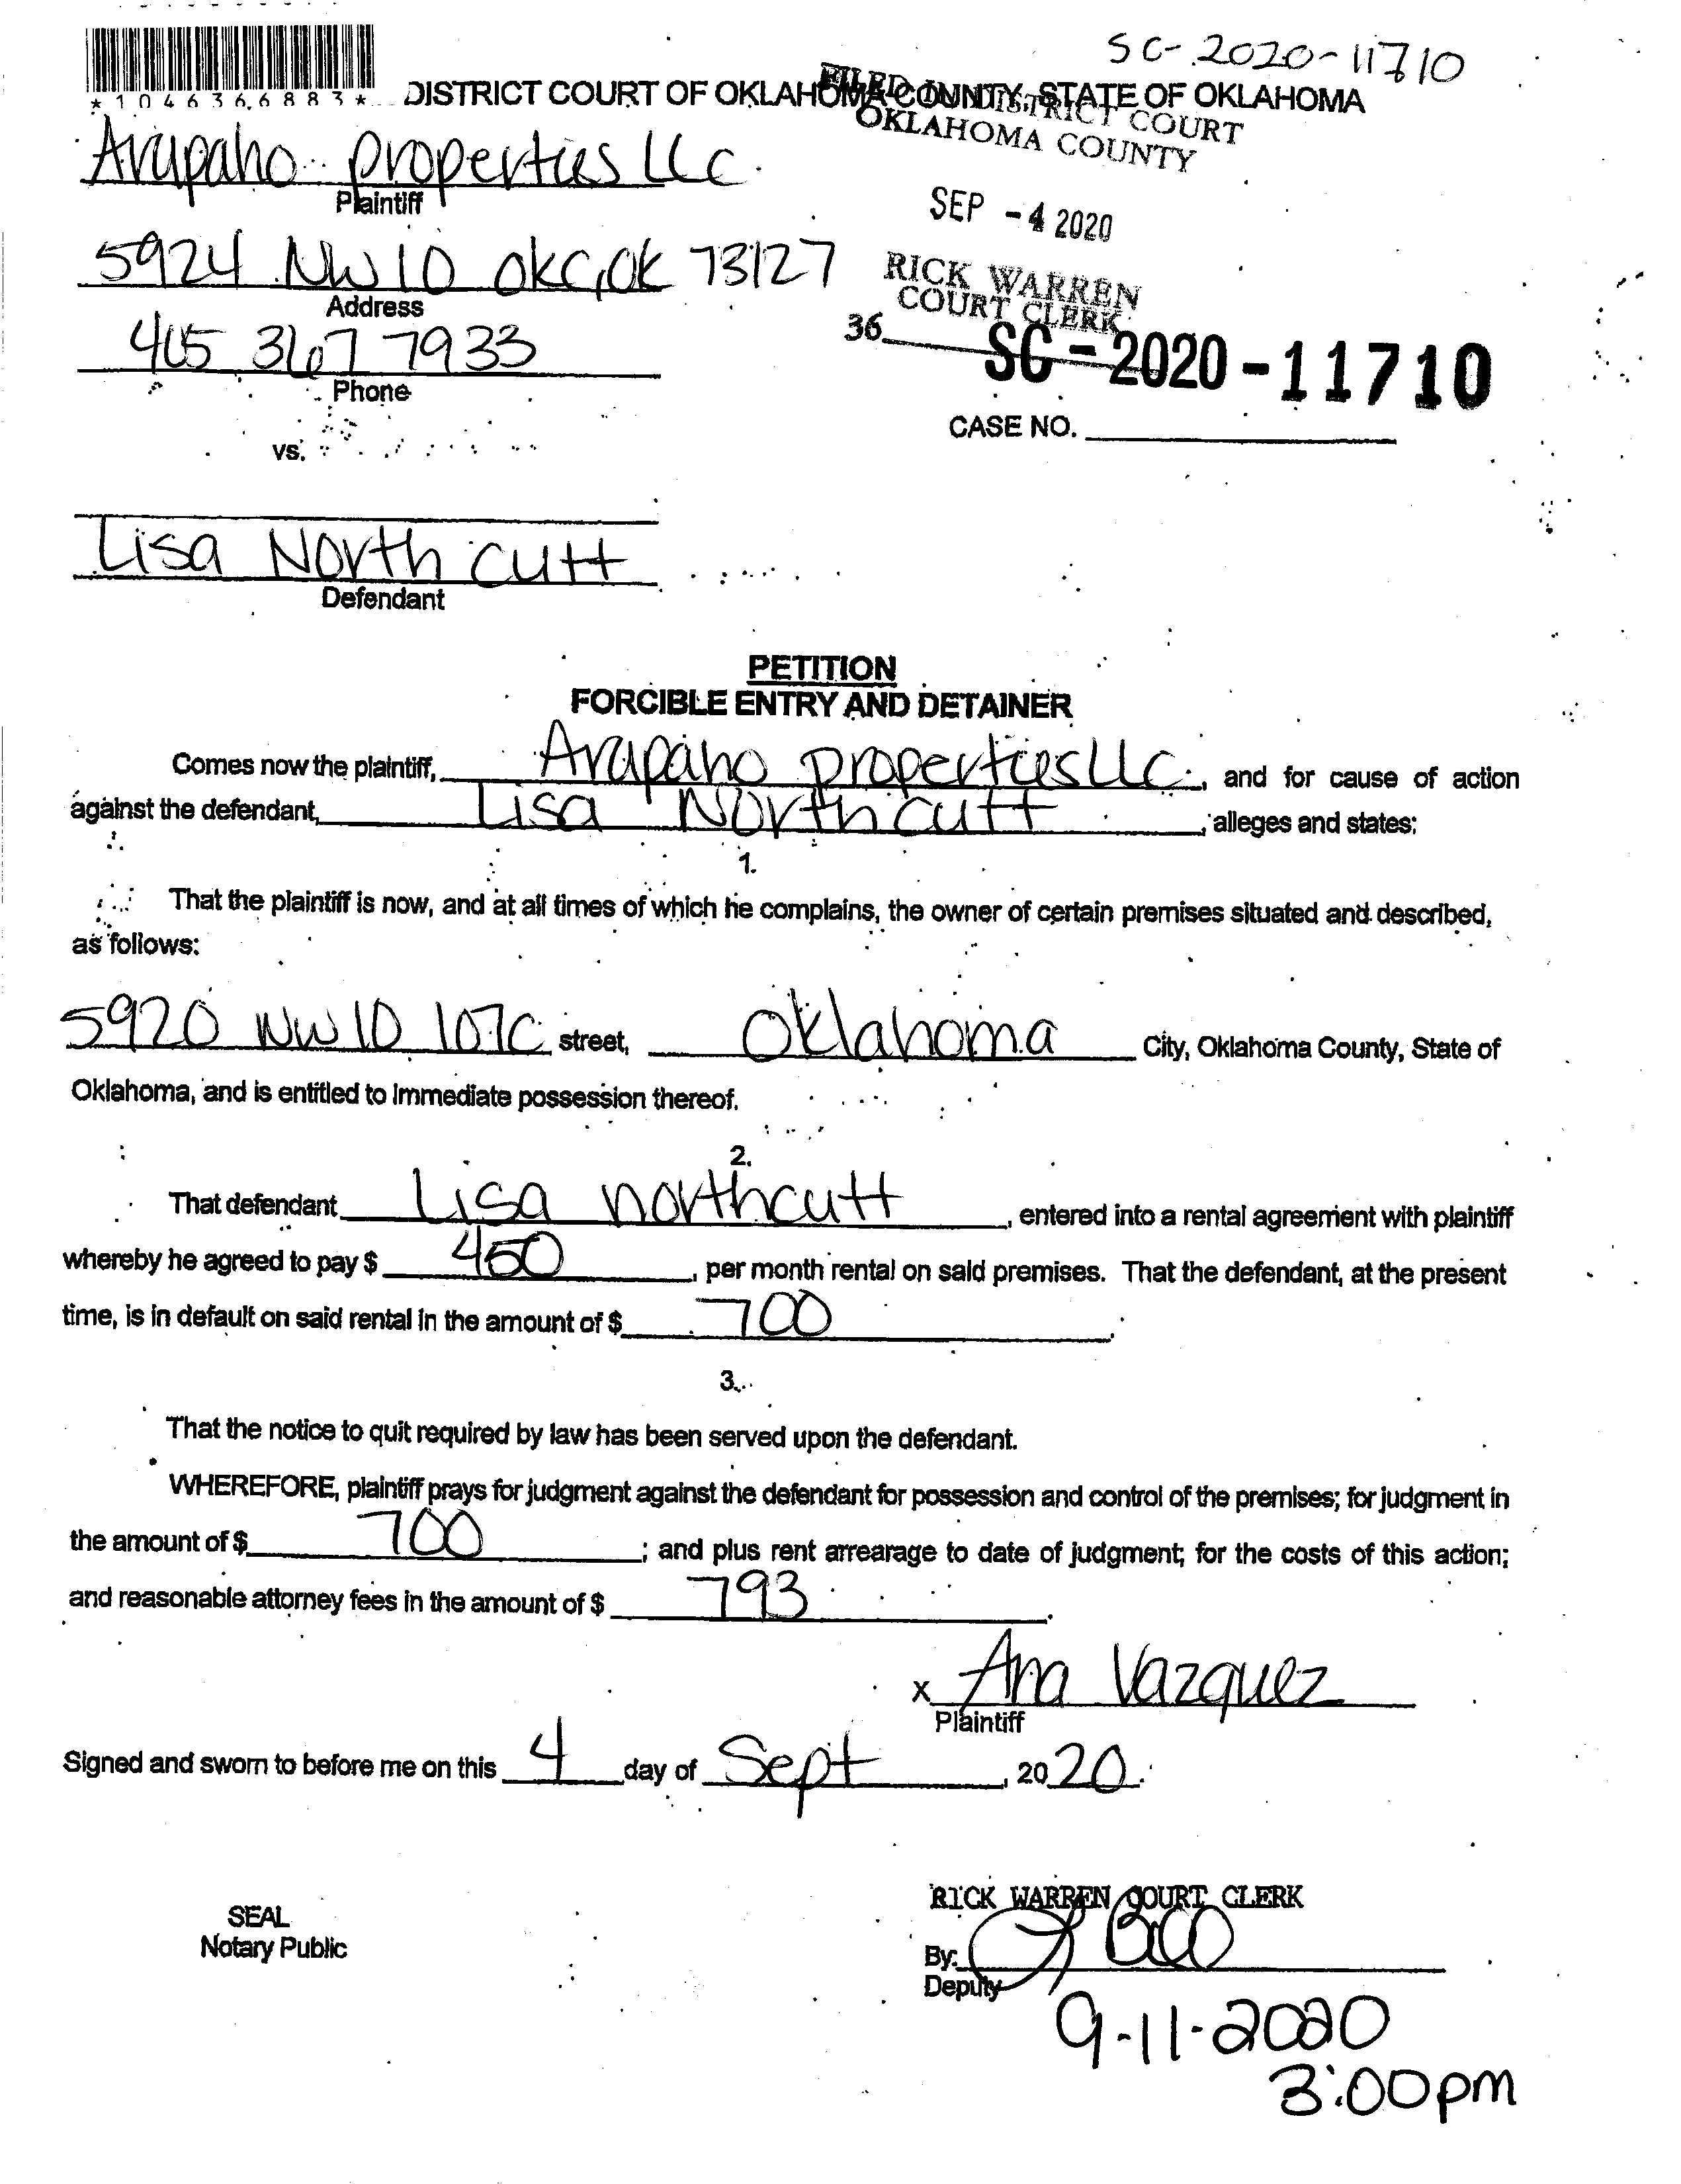 SC-2020-11710
*1046366883*
DISTRICT COURT OF OKLAHOMA COUNTY, STATE OF OKLAHOMA
FILED IN DISTRICT COURT
OKLAHOMA COUNTY
Arapaho properties LLC
Plaintiff
SEP -4 2020
5924 NW 10 OKC, OK 73127
Address
RICK WARREN
COURT CLERK
405 367 7933
Phone
36
SC-2020-11710
CASE NO.
vs.
Lisa North cutt
Defendant
PETITION
FORCIBLE ENTRY AND DETAINER
Comes now the plaintiff, Arapaho properties LLC, and for cause of action
against the defendant, Lisa North cutt, alleges and states:
1.
That the plaintiff is now, and at all times of which he complains, the owner of certain premises situated and described,
as follows:
5920 NW 10 107C street, Oklahoma City, Oklahoma County, State of
Oklahoma, and is entitled to immediate possession thereof.
2.
That defendant Lisa northcutt, entered into a rental agreement with plaintiff
whereby he agreed to pay $ 450, per month rental on said premises. That the defendant, at the present
time, is in default on said rental in the amount of $ 700.
3.
That the notice to quit required by law has been served upon the defendant.
WHEREFORE, plaintiff prays for judgment against the defendant for possession and control of the premises; for judgment in
the amount of $ 700; and plus rent arrearage to date of judgment; for the costs of this action;
and reasonable attorney fees in the amount of $ 793.
x Ana Vazquez
Plaintiff
Signed and sworn to before me on this 4 day of Sept, 2020.
RICK WARREN COURT CLERK
SEAL
Notary Public
By:
Deputy
9-11-2020
3:00pm